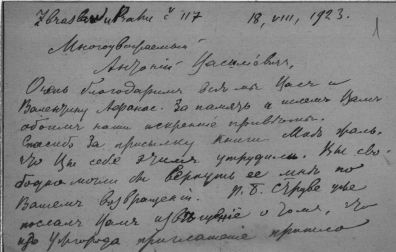 Zbraslav u Prahy č 117 18, VIII, 1923.
Многоуважаемый
Антоній
Очень благодаримъ Васъ и
Валентину Афанас. За память и шлемъ Вамъ
обоимъ наши искренніе привѣты.
Спасибо за присылку книги. Мнѣ жаль,
что Вы себя этимъ утрудили. Вы сво-
бодно могли бы вернуть ее мнѣ по
Вашемъ возвращеніи. П. Б. Струве уже
послалъ Вамъ извѣщеніе о томъ, что
изъ Ужгорода приглашеніе пришло
1